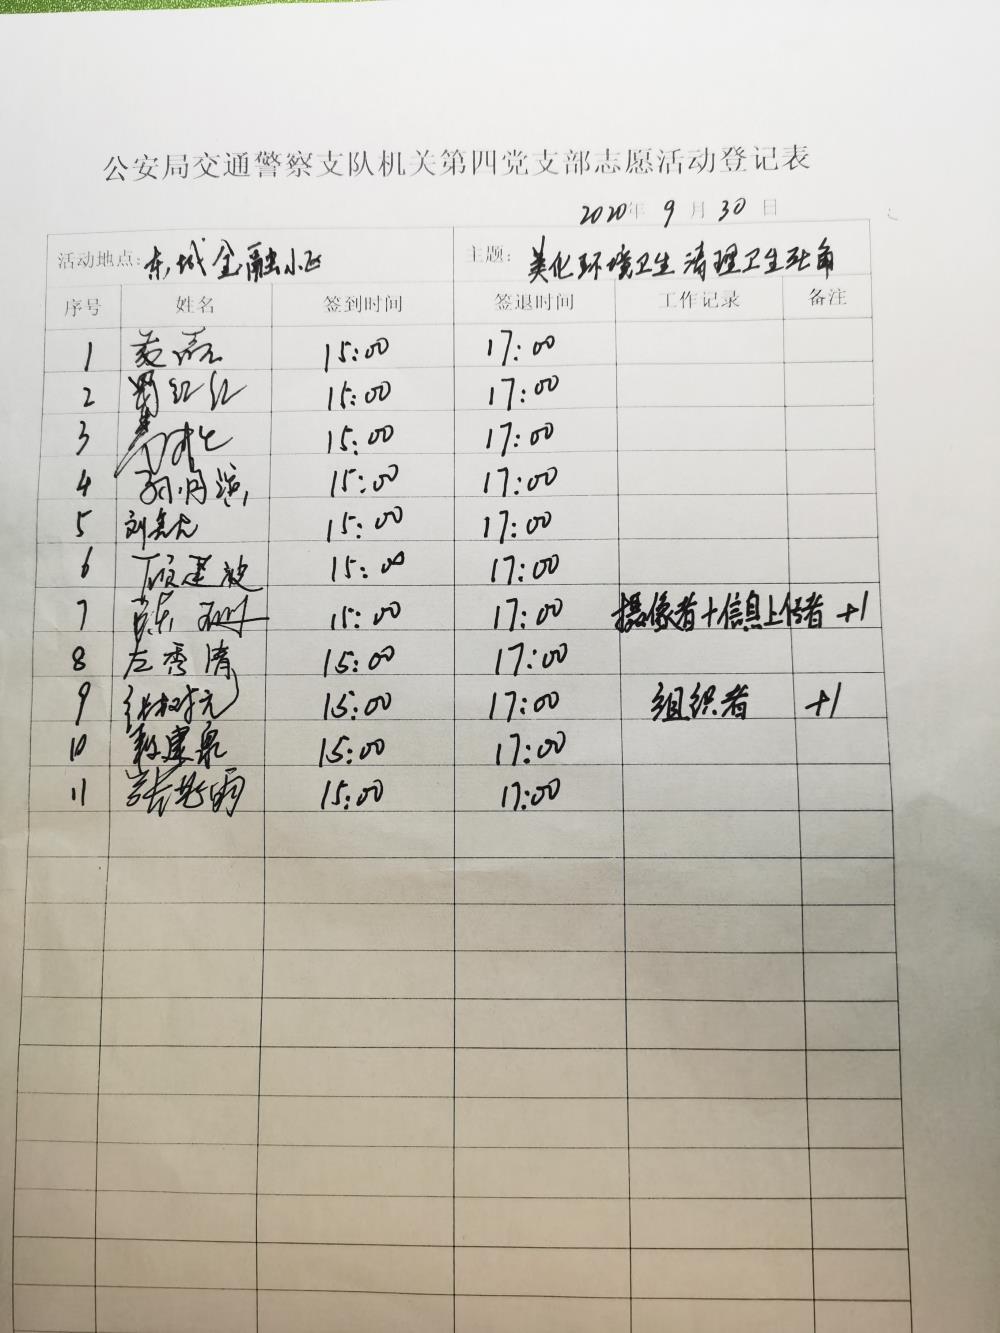 公安局交通警察支队机关第四党支部志愿活动登记表
2020年 9 月 30 日
活动地点: 东城金融小区 主题: 美化环境卫生 清理卫生死角
序号 姓名 签到时间 签退时间 工作记录 备注
1 15:00 17:00
2 红红 15:00 17:00
3 15:00 17:00
4 15:00 17:00
5 刘 15:00 17:00
6 建 15:00 17:00
7 陈 15:00 17:00 摄像者+信息上传者 +1
8 左秀清 15:00 17:00
9 张 15:00 17:00 组织者 +1
10 建泉 15:00 17:00
11 张 雨 15:00 17:00